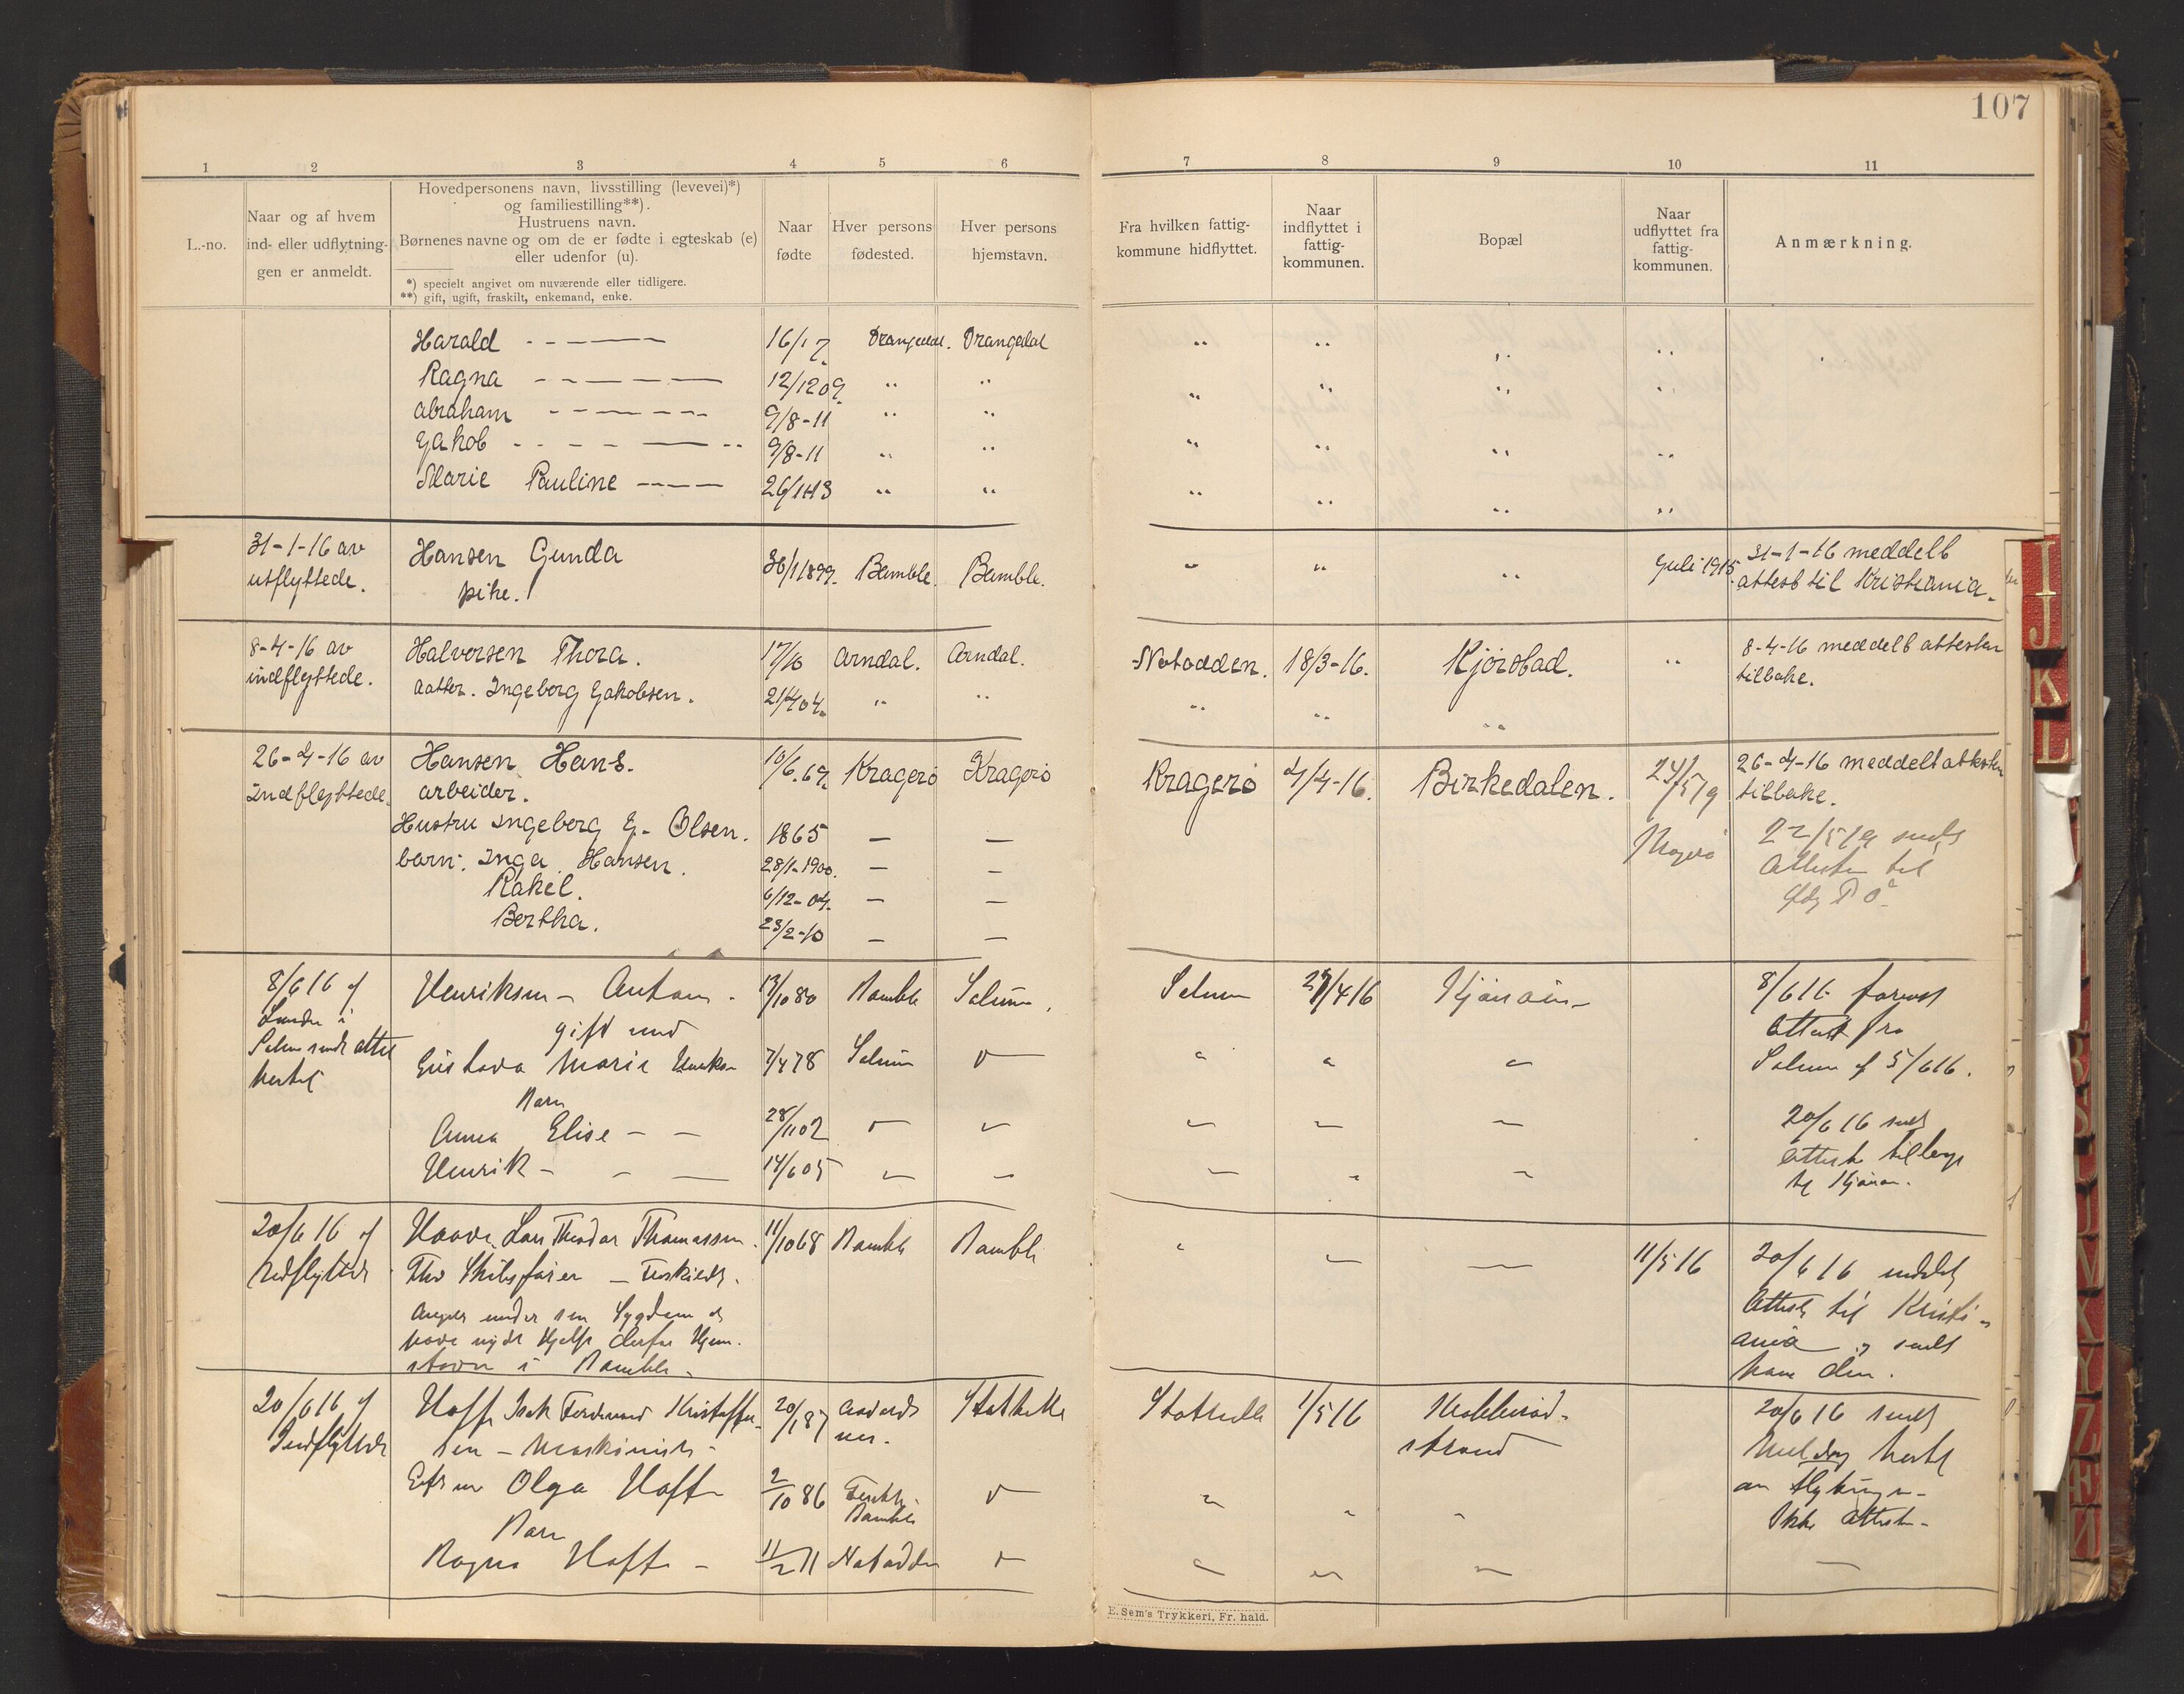 107
1 2 3 4 5 6 7 8 9 10 11
L.-no.
Naar og af hvem
ind- eller udflytning-
gen er anmeldt.
Hovedpersonens navn, livsstilling (levevei)*)
og familiestilling**).
Hustruens navn.
Børnenes navne og om de er fødte i egteskab (e)
eller udenfor (u).
*) specielt angivet om nuværende eller tidligere.
**) gift, ugift, fraskilt, enkemand, enke.
Naar
fødte
Hver persons
fødested.
Hver persons
hjemstavn.
Fra hvilken fattig-
kommune hidflyttet.
Naar
indflyttet i
fattig-
kommunen.
Bopæl
Naar
udflyttet fra
fattig-
kommunen.
Anmærkning.
Harald - - — — 16/1 7 Drangedal. Drangedal " " " "
Ragna - - — — — 12/12 09 " " " " " "
Abraham - - — - - 9/8-11 " "
Jakob - - - — - 9/8-11 " " " " " "
Marie Pauline - — — 26/1113 " " " " " "
31-1-16 av
utflyttede.
Hansen Gunda
pike.
30/1 1899. Bamble. Bamble. " " " Juli 1915.
31-1-16 meddelt
attest til Kristiania.
8-4-16 av
indflyttede.
Halvorsen Thora.
datter. Ingeborg Jakobsen.
17/10 Arndal. Arndal.
21/4 04. " "
Notodden. 18/3-16. Kjørstad. "
" " "
8-4-16 meddelt attesten
tilbake.
26-4-16 av
Indflyttede.
Hansen Hans.
arbeider.
Hustru Ingeborg J. Olsen.
barn: Inga Hansen.
Rakel.
Bertha.
10/6.69. Kragerø Kragerø
1865 — —
28/1-1900. — —
6/12-04. — —
23/2-10 — —
Kragerø 4/4-16. Birkedalen. 24/5 19
26-4-16 meddelt attesten
tilbake.
22/5 19 sendt
Attesten til
8/6 16 af
Lunde i
Solum sendt attest
hertil
Henriksen - Antom -
gift med
Gustava Marie Henriksen
Barn
Anna Elise - -
Henrik - - —
13/10 80 Bamble Solum.
7/4 78 Solum
28/11 02
14/6 05
Solum 27/4 16
8/6 16
Attest fra
Solum af 5/6 16.
20/6 16 sendt
Attesten tilbage
20/6 16 af
Udflyttede
Haave, Lars Theodor Thomassen.
Skibsfører —
Angiver under sin Sygdom at
have nydt Hjelp derfor Hjem-
stavn i Bamble.
11/10 68 Bamble Bamble
11/5 16
20/6 16 meddelt
Attest til Kristi-
ania og sendt
ham den.
20/6 16 af
Indflyttede
Hoff Isak Ferdinand Kristoffer-
sen - Maskinist -
Olga Hoff
Barn
Ragna Hoff -
20/1 87 Stathelle
2/10 86 Bamble
11/2 11 Notodden
Stathelle 1/5 16
strand
20/6 16 sendt
Melding hertil
om Flytningen
Ikke Attesten -
E. Sem's Trykkeri, Fr. hald.
I
J
K
L